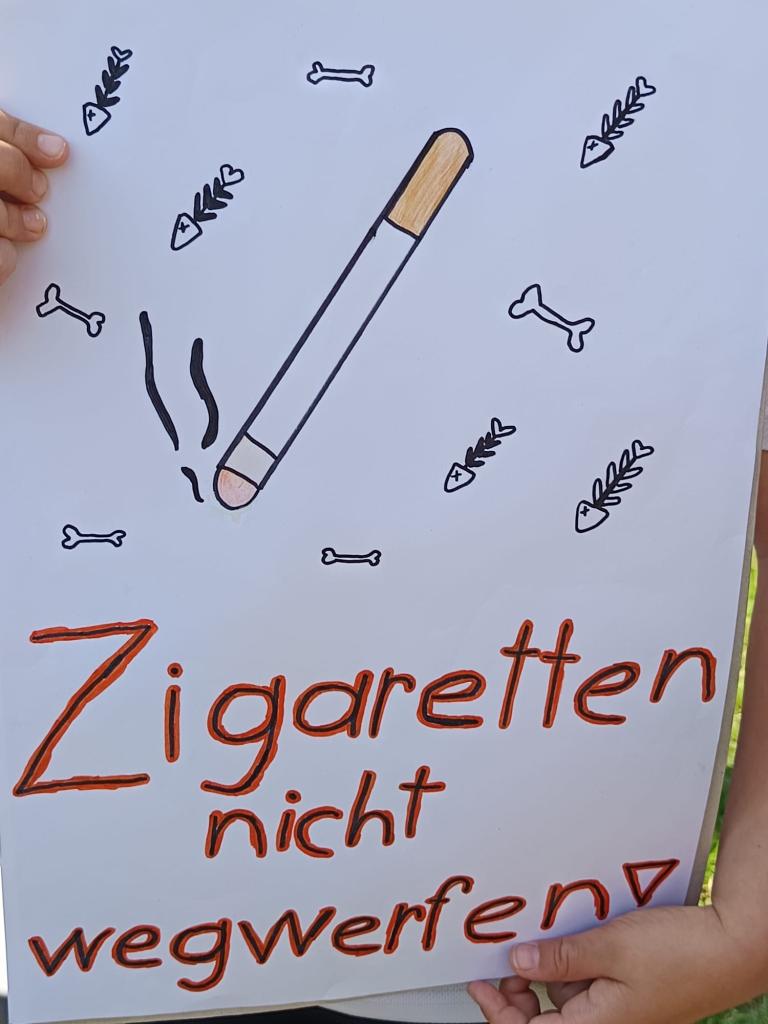 Zigaretten
nicht
wegwerfen!